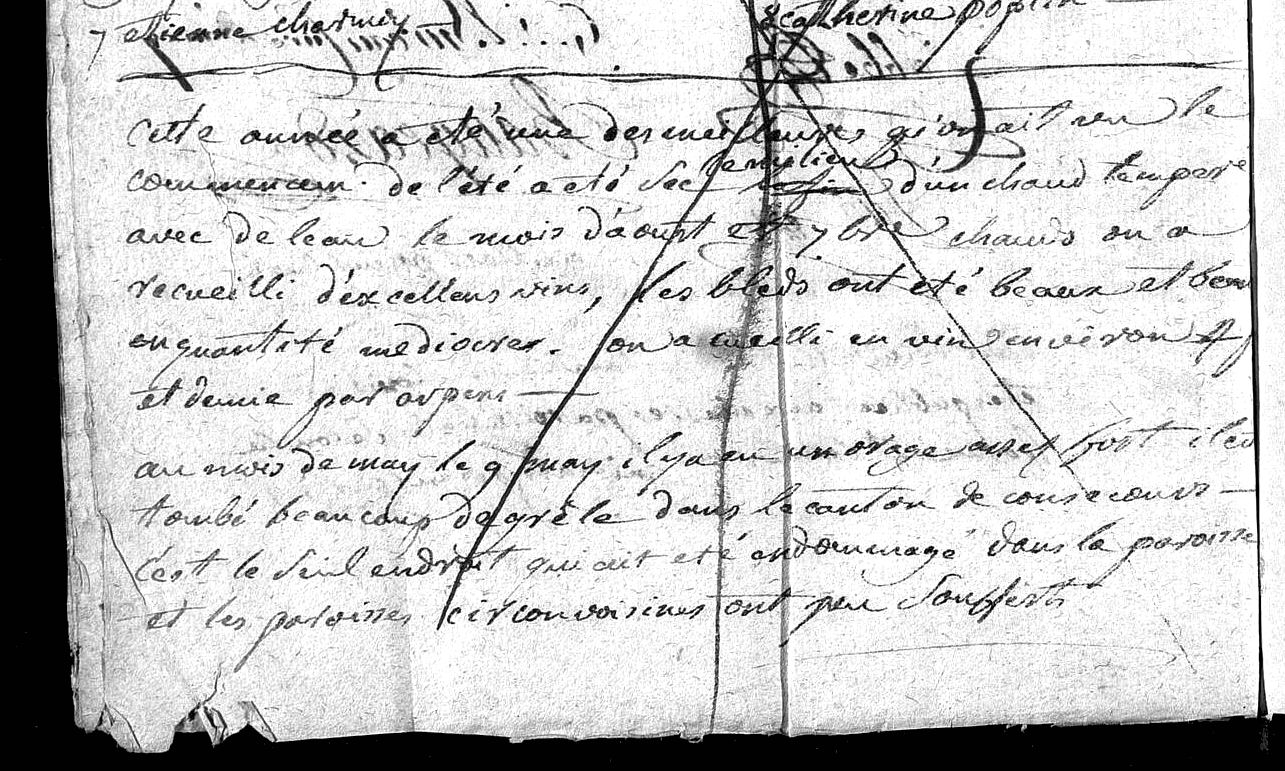 7 etienne charmoy. 8 catherine poplin
cette année a été une des meilleures qu'on ait vu le
commencem. de l'été a été sec le milieu d'un chaud temperé
avec de leau le mois d'aoust et 7bre chauds on a
recueilli d'excellens vins, les bleds ont eté beaux et beau
en quantité mediocres. on a cueilli en vin environ
et demie par arpent
au mois de may le 9 may il y a eu un orage assez fort il en
tombé beaucoup de grèle dans le canton de
c'est le seul endroit qui ait eté endommagé dans la paroisse
et les paroisses circonvoisines ont peu souffert